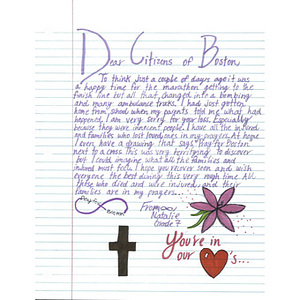 Dear Citizens of Boston
To think just a couple of days ago it was
a happy time for the marathon getting to the
finish line but all that changed into a bombing
and many ambulance truks. I had just gotten
home from school when my parents told me what had
happened. I am very sorry for your loss. Especially
because they were innocent people. I have all the injured
and families who lost loved ones in my prayers. At home
I even have a drawing that says "Pray for Boston"
next to a cross. This was very terrifying to discover
but I could imagine what all the families and
injured must feel. I hope you recover soon and with
everyone the best during this very rough time. All
those who died and were injured and their
families are in my prayers...
Pray for Boston
From
Natalie
Grade 7
You're in
our s...